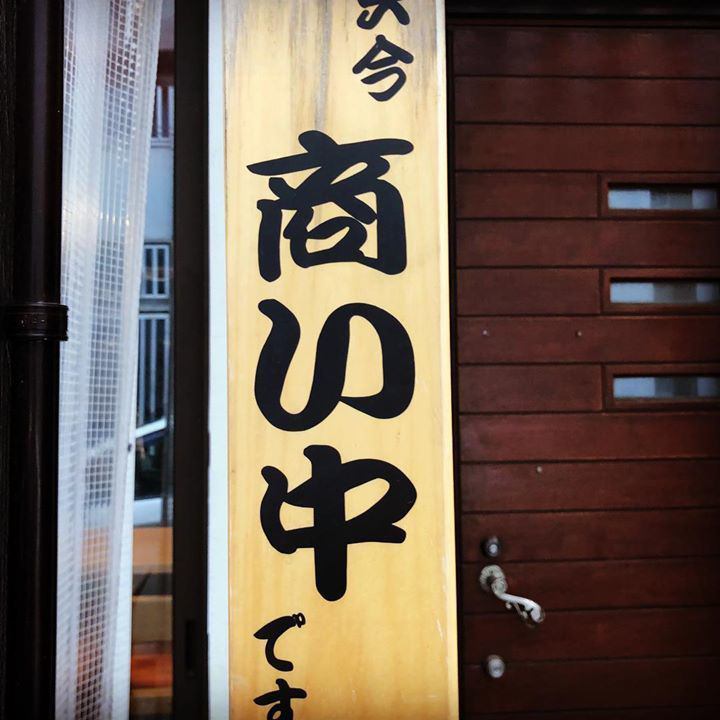 只今
商い中
です